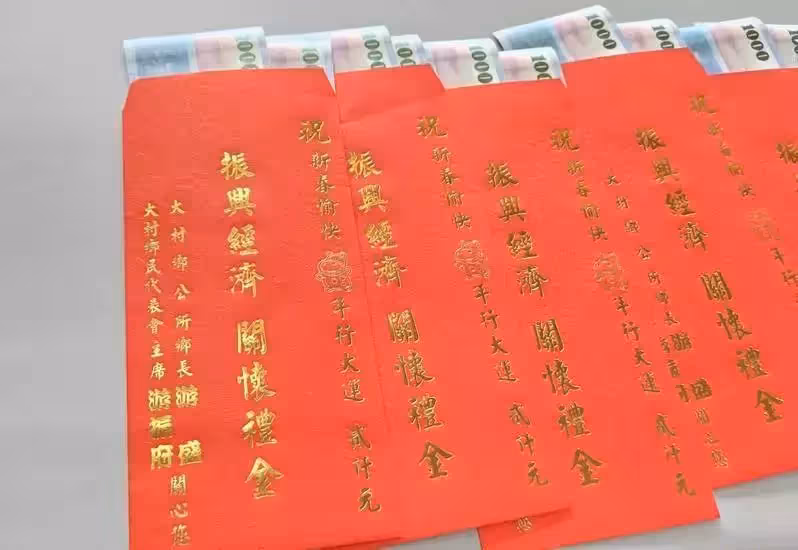 1000
000
1000
1000
100
1000
1000
1000
祝 新春愉快 年行大運 貳仟元
振興經濟 關懷禮金
大村鄉公所鄉長 游盛 關心您
大村鄉民代表會主席 游 府
祝 新春愉快 年行大運 貳仟元
振興經濟 關懷禮金
祝 新春愉快 年行大運 貳仟元
振興經濟 關懷禮金
祝 新春愉快 年行
振興經濟 關懷禮金
大村鄉公所鄉長 游盛 關心您
振